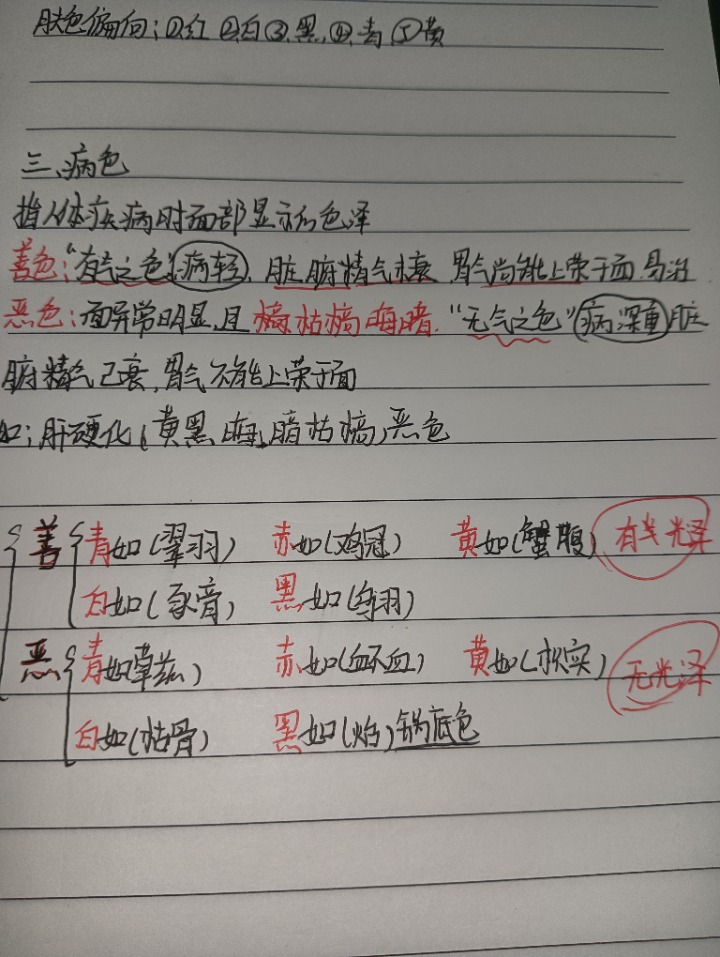 肤色偏向：①红 ②白 ③黑 ④青 ⑤黄
三、病色
指人体疾病时面部显示的色泽
善色："有气之色"病轻，脏腑精气未衰，胃气尚能上荣于面，易治
恶色：面异常明显，且枯槁晦暗，"无气之色"病深重脏
腑精气已衰，胃气不能上荣于面
如：肝硬化（黄黑、晦暗枯槁）恶色
善 青如（翠羽） 赤如（鸡冠） 黄如（蟹腹） 有光泽
白如（豕膏） 黑如（乌羽）
恶 青如草兹） 赤如（衃血） 黄如（枳实） 无光泽
白如（枯骨） 黑如（炲）锅底色